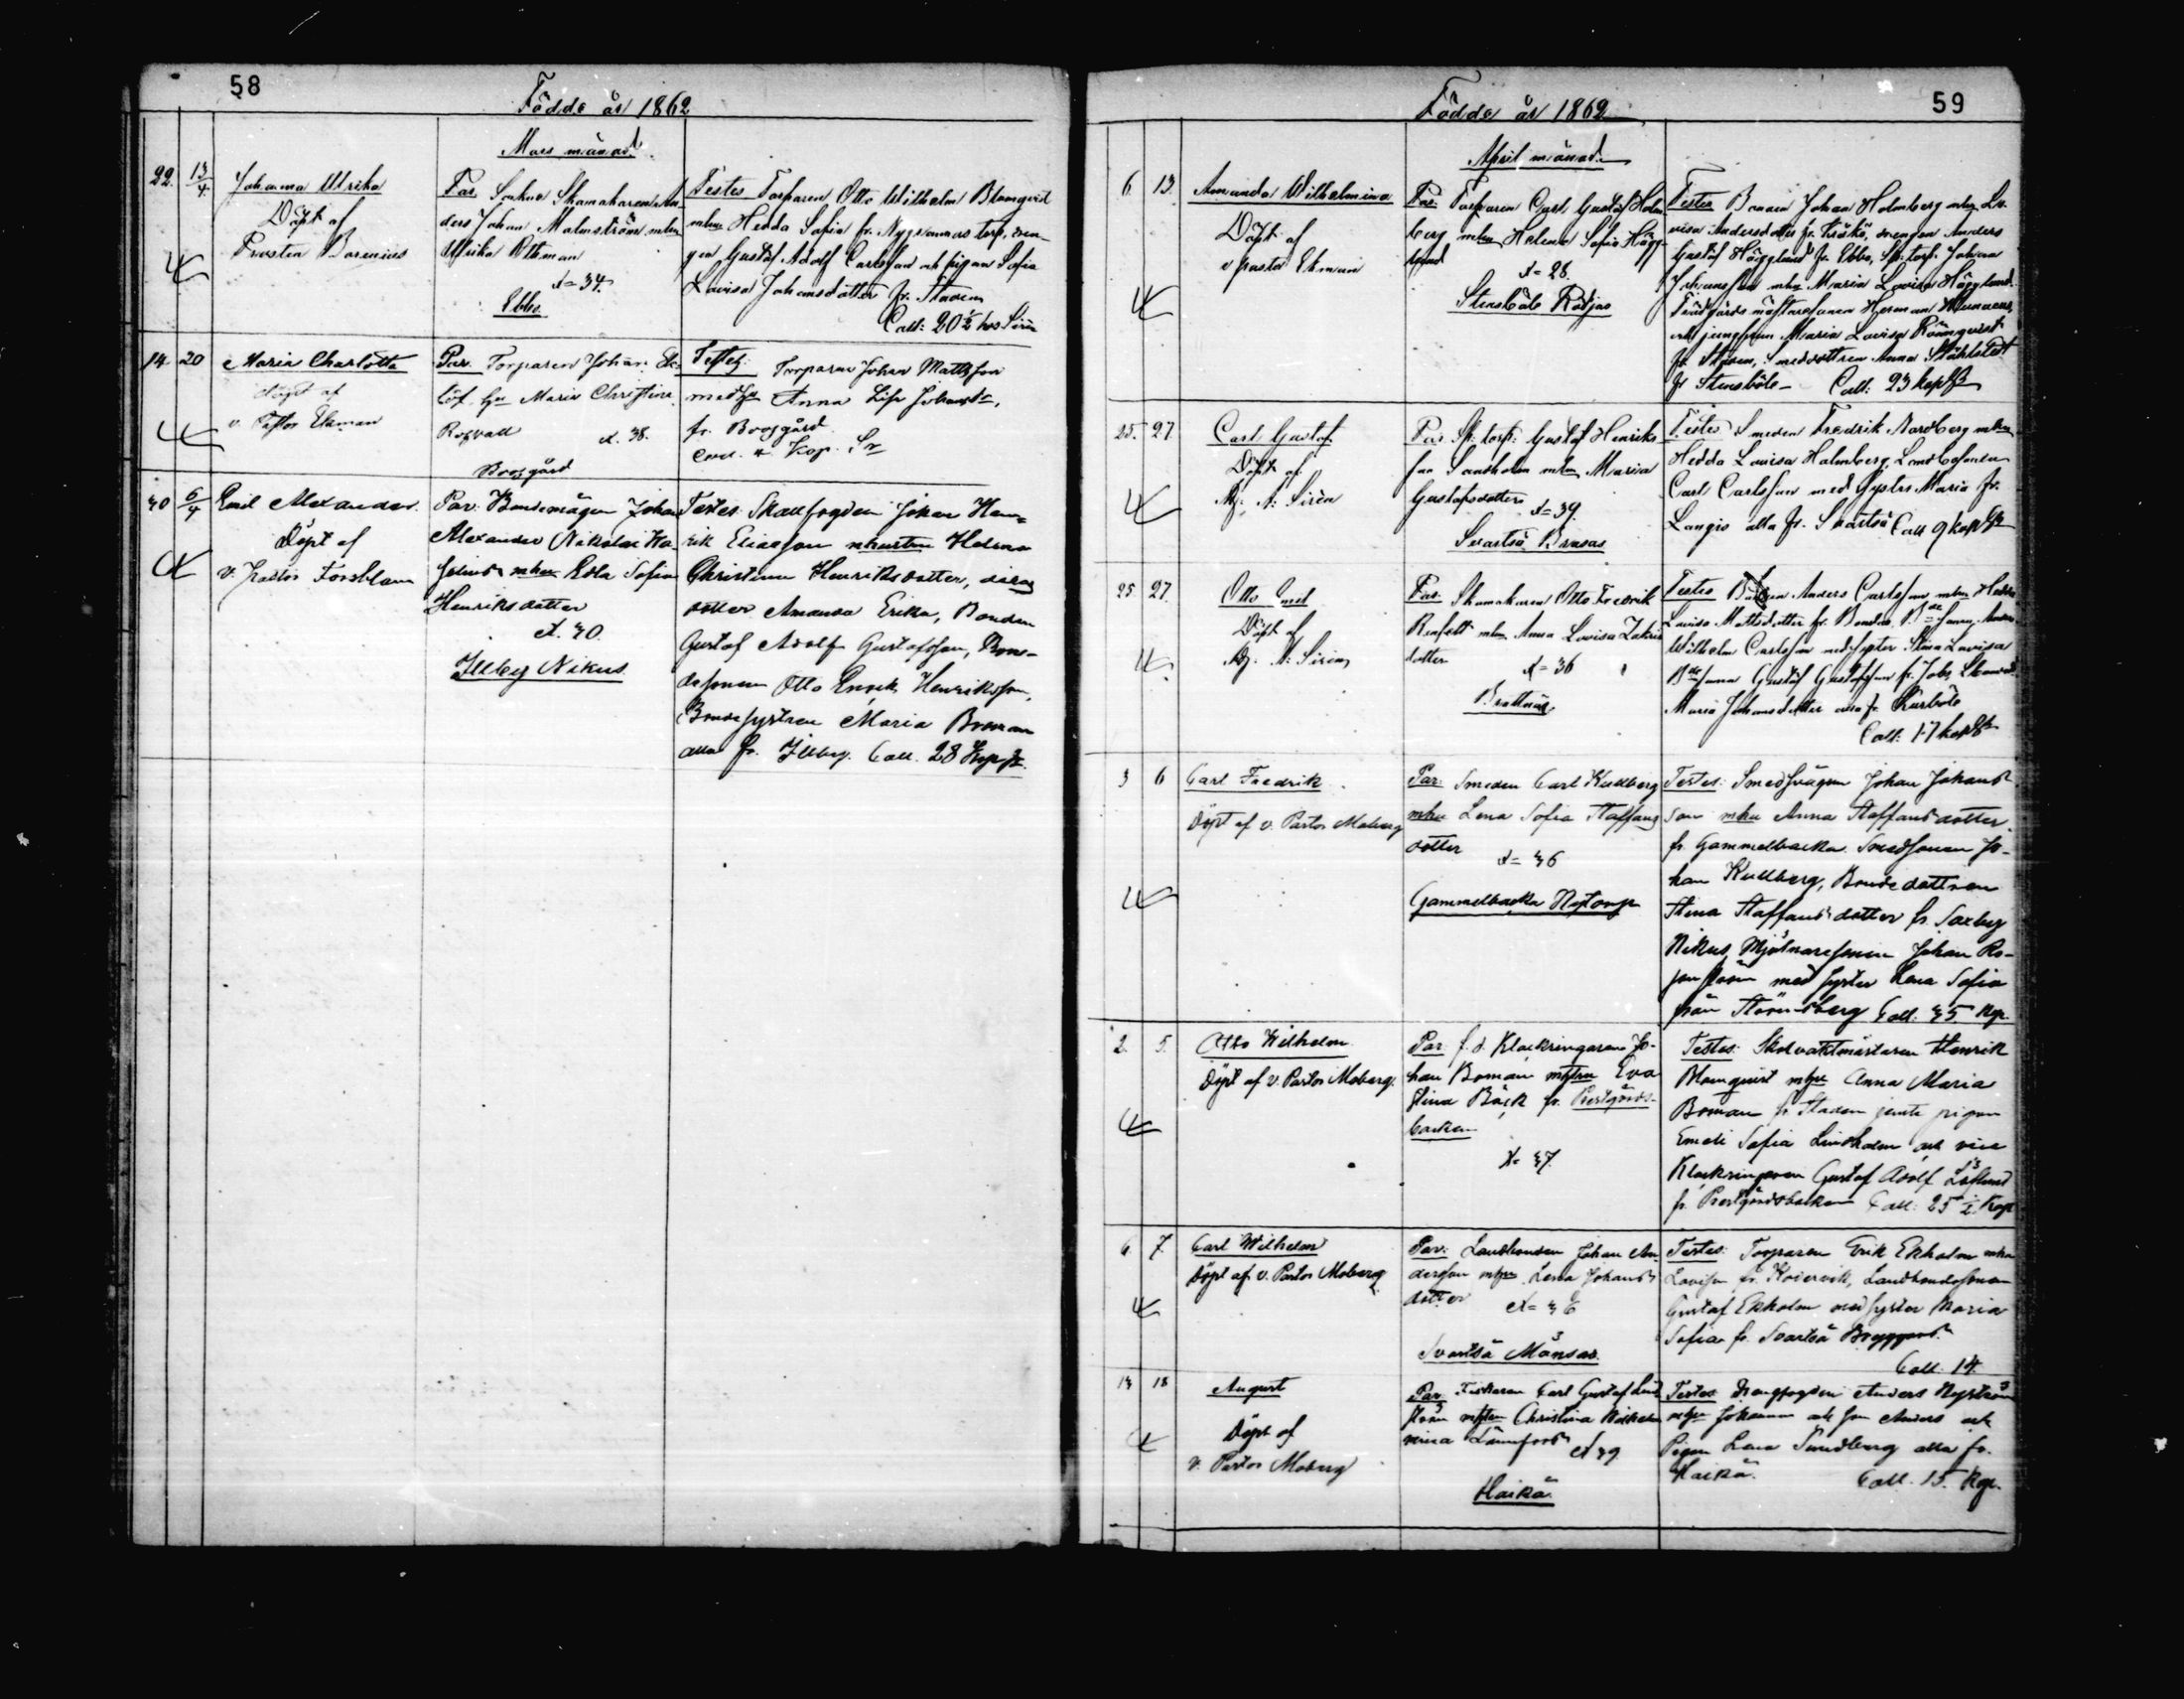 58
Födde år 1862
Mars månad.
22. 13/4 Johanna Ulrika
Döpt af
Prosten Borenius
Par. Sockne Skomakaren An-
ders Johan Malmström mhu
Ulrika Öhman
d= 34.
Ebbo
Testes Torparen Otto Wilhelm Blomqvist
mhu Hedda Sofia fr. torp, dren-
gen Gustaf Adolf Carlsson och pigan Sofia
Lovisa Johansdotter fr. Staden
Coll: 20 1/2 hos Sirén
14. 20 Maria Charlotta
döpt af
v. Pastor Ekman
Par. Torparen Johan Ek-
löf, hu Maria Christina
Rosvall d. 38.
Boesgård
Testes: Torparen Johan Mattsson
med hu Anna Lisa Johansdr,
fr. Boesgård
Coll. 4 Kop. Sr
30 6/4 Emil Alexander.
Döpt af
v. Pastor Forsblom
Par: Bondemågen Johan
Alexander Nikolai Ho-
mhu Edla Sofia
Henriksdotter
d. 30.
Illby Nikus
Testes: Skallfogden Johan Hen-
rik Eliasson mhustru Helena
Christina Henriksdotter, deras
dotter Amanda Erika, Bonden
Gustaf Adolf Gustafsson, Bon-
desonen Otto Enrik Henriksson,
Bondesystren Maria Boman
alla fr. Illby. Coll. 28 Kop Sr.
59
Födde år 1862
April månad.
6. 13. Amanda Wilhelmina
Döpt af
v pastor Ekman
Par: Torparen Carl Gustaf Holm
berg mhu Helena Sofia Hägg-
lund
d= 28.
Stensböle Rödjas
Testes Bonden Johan Holmberg mhu Lo-
visa Andersdotter fr. Kråkö, drengen Anders
Gustaf Hägglund fr. Ebbo, Sp: torp. Johan
Johansson mhu Maria Lovisa Hägglund.
Trädgårdsmästaresonen Herman
och jungfrun Maria Lovisa Rönnqvist
fr. Staden, smeddottren Anna Ståhlstedt
fr Stensböle — Coll: 23 kop Sr
25. 27. Carl Gustaf
Döpt af
Mg. A: Sirén
Par. Sp: torp: Gustaf Henriks
son Sandholm mhu Maria
Gustafsdotter d= 39.
Svartså Brusas
Testes Smeden Fredrik Nordberg mhu
Hedda Lovisa Holmberg, Landbosonen
Carl Carlsson med Syster Maria fr.
Langis alla fr. Svartså Coll 9 kop Sr
25. 27. Otto Emil
Döpt af
Mg. A: Sirén
Par. Skomakaren Otto Fredrik
Renfelt mhu Anna Lovisa Zakris
dotter d= 36
Brattnäs
Testes Anders Carlsson mhu Hedda
Lovisa Mattsdotter fr. Bondas, Bdesonen Anders
Wilhelm Carlsson med syster Stina Lovisa
Bdesonen Gustaf Gustafsson fr. Jobs,
Maria Johansdotter alla fr Kurböle
Coll: 17 kop Sr
3 6 Carl Fredrik
Döpt af v. Pastor Moberg
Par: Smeden Carl Kullberg
mhu Lena Sofia Staffans
dotter
d= 36
Gammelbacka Nytorp
Testes: Smedsvågern Johan Johans
son mhu Anna Staffansdotter
fr. Gammelbacka. Smedsonen Jo-
han Kullberg, Bondedottren
Stina Staffansdotter fr. Saxby
Nikus, Mjölnaresonen Johan Ro-
senström med syster Lena Sofia
från Störensberg Coll. 35. Kop.
2. 5. Otto Wilhelm
Döpt af v. Pastor Moberg.
Par. f. d. Klockringaren Jo-
han Boman mhstru Eva
Stina Bäck fr. Prestgårds-
backen
d= 37.
Testes: Skolvaktmästaren Henrik
Blomqvist mhu Anna Maria
Boman fr. Staden jemte pigan
Emeli Sofia Lindholm och vice
Klockringaren Gustaf Adolf Löflund
fr. Prestgårdsbacken Coll. 25 1/2 Kop
6. 7. Carl Wilhelm
Döpt af v. Pastor Moberg
Par: Landbonden Johan An-
dersson mhu Lena Johans
dotter d= 36
Svartså Månsas.
Testes: Torparen Erik Ekholm mhu
Lovisa fr. Koirvik, Landbondesonen
Gustaf Ekholm med syster Maria
Sofia fr. Svartså
Coll. 14
14 18 August
Döpt af
v. Pastor Moberg
Par. Fiskaren Carl Gustaf Lind
ström mhstru Christina Wilhelm
mina d 39
Haikå.
Testes: Drengfogden Anders Nyström
mhu Johanna och son Anders och
Pigan Lena Sundberg alla fr.
Haikå. Coll. 15. Kop.